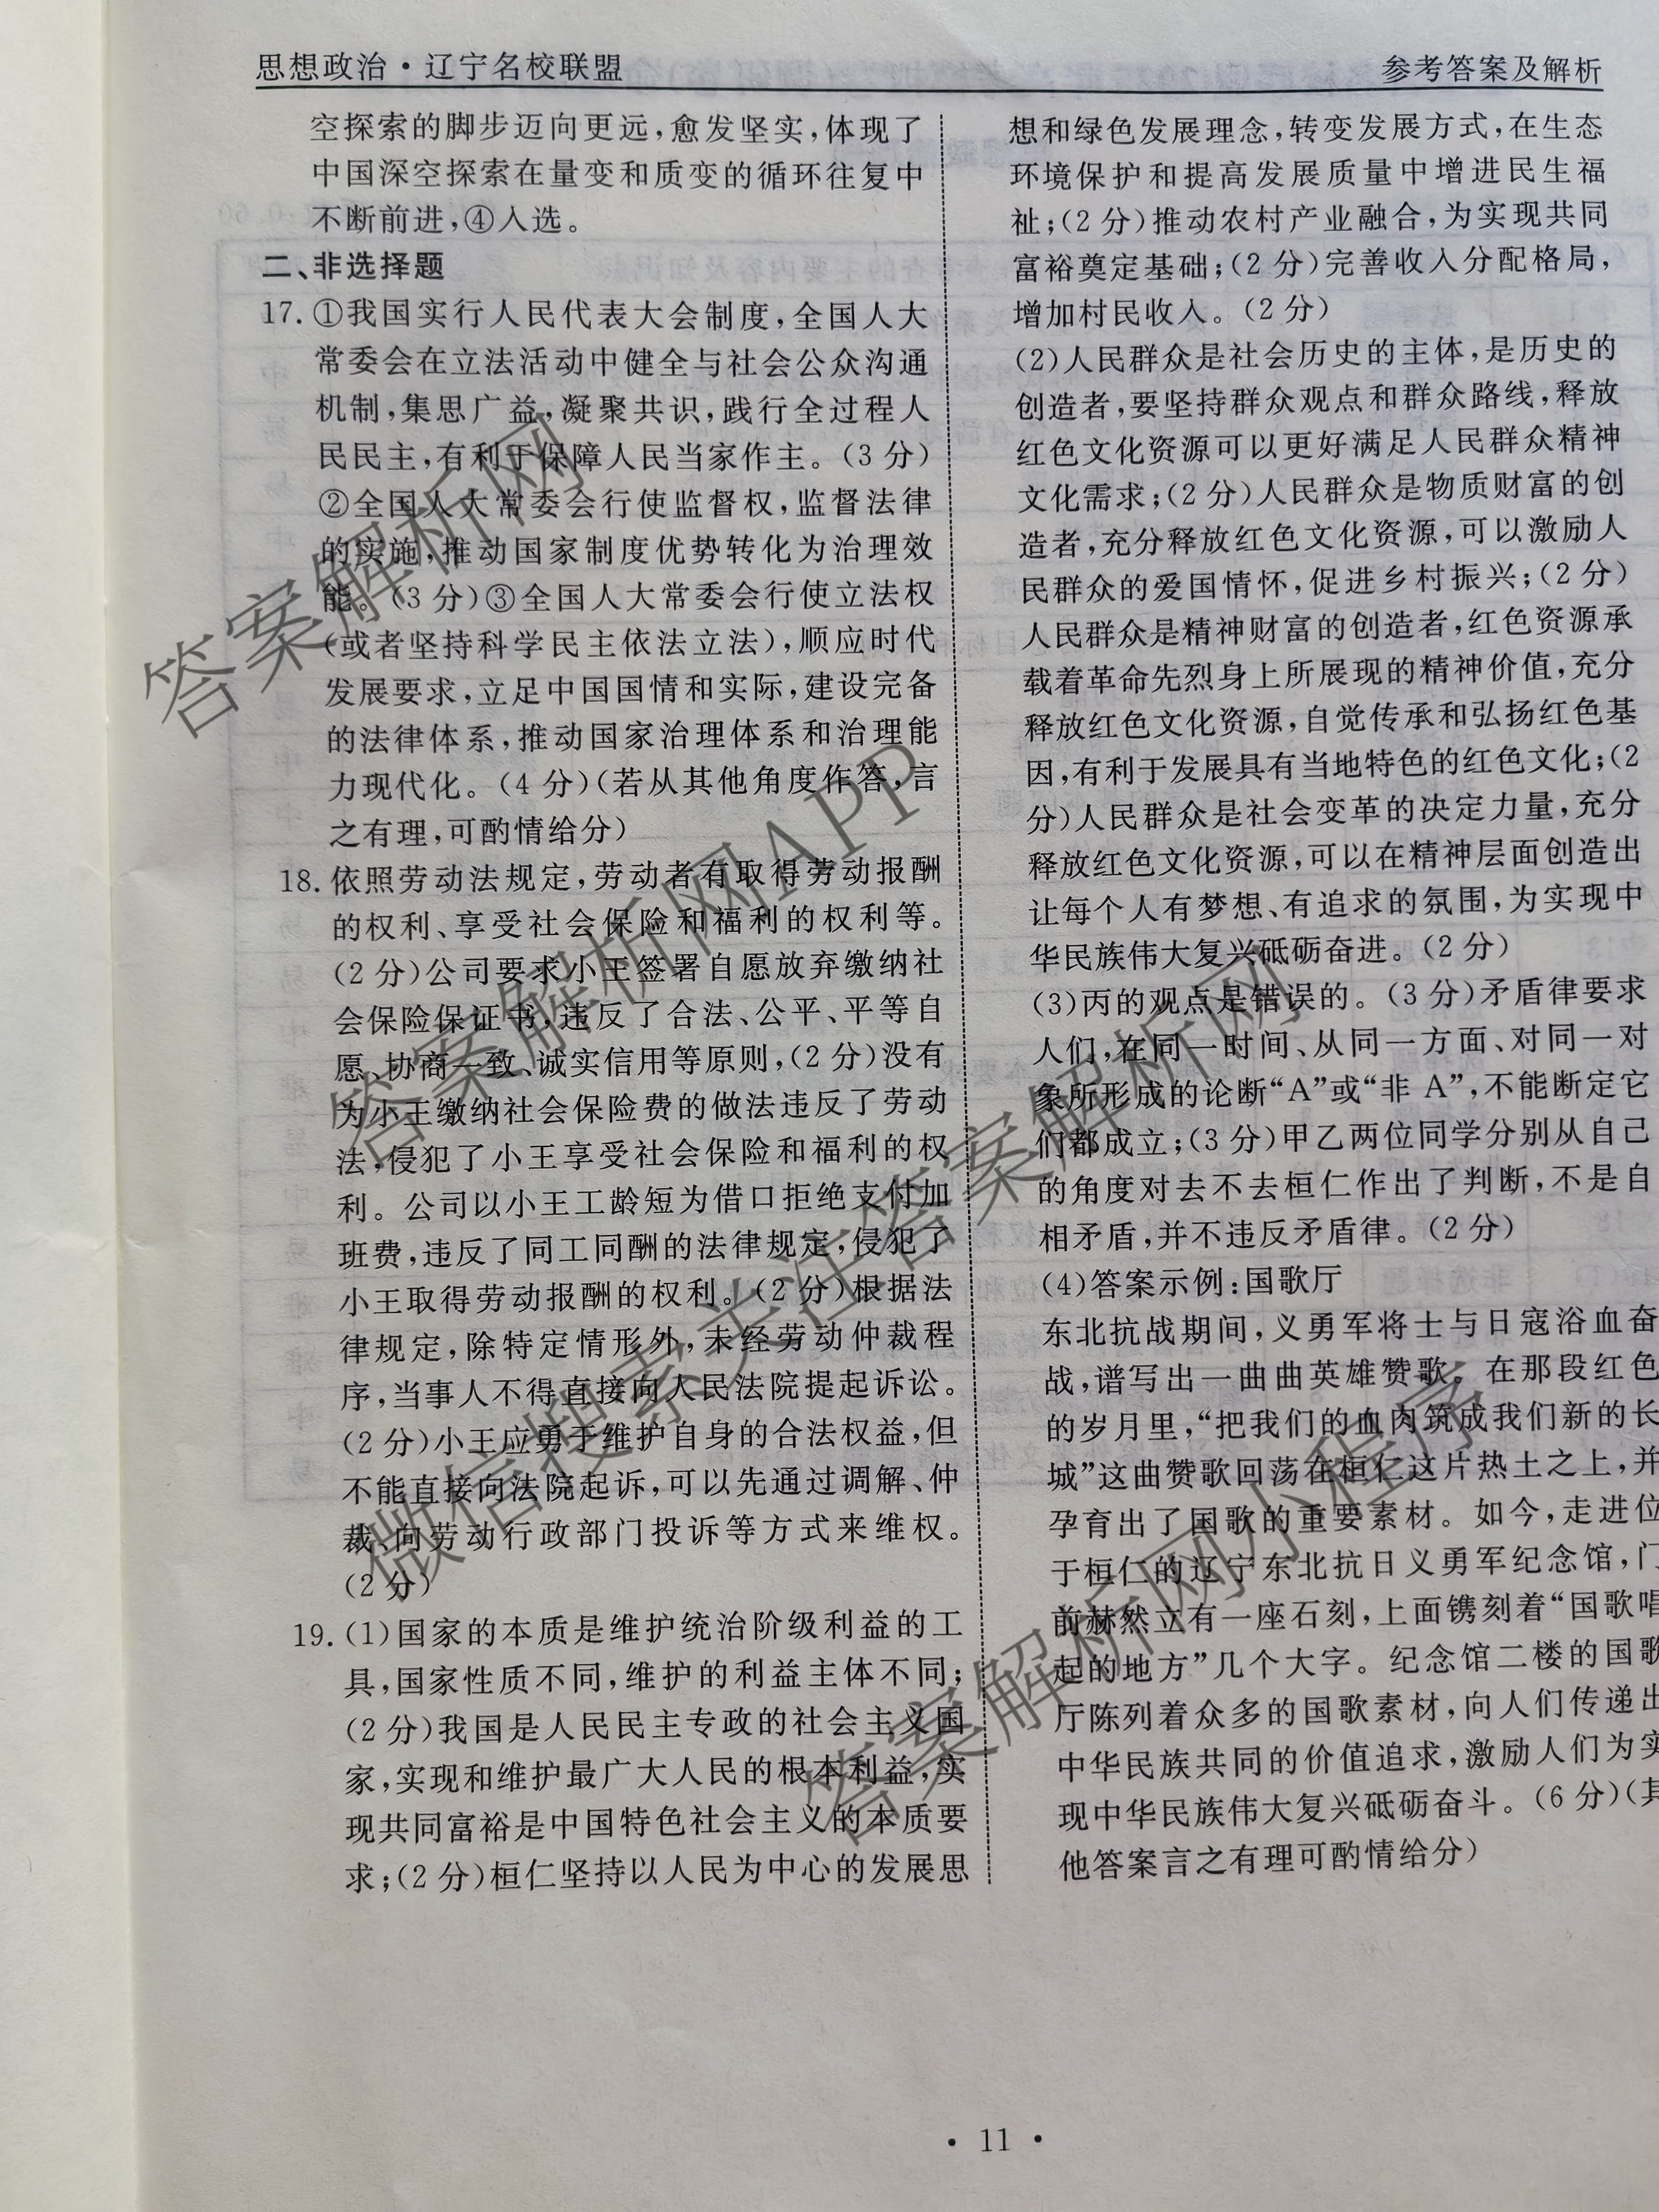 思想政治·辽宁名校联盟
参考答案及解析
空探索的脚步迈向更远,愈发坚实,体现了
中国深空探索在量变和质变的循环往复中
不断前进,④入选。
二、非选择题
17.①我国实行人民代表大会制度,全国人大
常委会在立法活动中健全与社会公众沟通
机制,集思广益,凝聚共识,践行全过程人
民民主,有利于保障人民当家作主。(3分)
②全国人大常委会行使监督权,监督法律
的实施,推动国家制度优势转化为治理效
能。(3分)③全国人大常委会行使立法权
(或者坚持科学民主依法立法),顺应时代
发展要求,立足中国国情和实际,建设完备
的法律体系,推动国家治理体系和治理能
力现代化。(4分)(若从其他角度作答,言
之有理,可酌情给分)
18.依照劳动法规定,劳动者有取得劳动报酬
的权利、享受社会保险和福利的权利等。
(2分)公司要求小王签署自愿放弃缴纳社
会保险保证书,违反了合法、公平、平等自
愿、协商一致、诚实信用等原则,(2分)没有
为小王缴纳社会保险费的做法违反了劳动
法,侵犯了小王享受社会保险和福利的权
利。公司以小王工龄短为借口拒绝支付加
班费,违反了同工同酬的法律规定,侵犯了
小王取得劳动报酬的权利。(2分)根据法
律规定,除特定情形外,未经劳动仲裁程
序,当事人不得直接向人民法院提起诉讼。
(2分)小王应勇于维护自身的合法权益,但
不能直接向法院起诉,可以先通过调解、仲
裁、向劳动行政部门投诉等方式来维权。
(2分)
19.(1)国家的本质是维护统治阶级利益的工
具,国家性质不同,维护的利益主体不同;
(2分)我国是人民民主专政的社会主义国
家,实现和维护最广大人民的根本利益,实
现共同富裕是中国特色社会主义的本质要
求;(2分)桓仁坚持以人民为中心的发展思
想和绿色发展理念,转变发展方式,在生态
环境保护和提高发展质量中增进民生福
祉;(2分)推动农村产业融合,为实现共同
富裕奠定基础;(2分)完善收入分配格局,
增加村民收入。(2分)
(2)人民群众是社会历史的主体,是历史的
创造者,要坚持群众观点和群众路线,释放
红色文化资源可以更好满足人民群众精神
文化需求;(2分)人民群众是物质财富的创
造者,充分释放红色文化资源,可以激励人
民群众的爱国情怀,促进乡村振兴;(2分)
人民群众是精神财富的创造者,红色资源承
载着革命先烈身上所展现的精神价值,充分
释放红色文化资源,自觉传承和弘扬红色基
因,有利于发展具有当地特色的红色文化;(2
分)人民群众是社会变革的决定力量,充分
释放红色文化资源,可以在精神层面创造出
让每个人有梦想、有追求的氛围,为实现中
华民族伟大复兴砥砺奋进。(2分)
(3)丙的观点是错误的。(3分)矛盾律要求
人们,在同一时间、从同一方面、对同一对
象所形成的论断“A”或“非 A”,不能断定它
们都成立;(3分)甲乙两位同学分别从自己
的角度对去不去桓仁作出了判断,不是自
相矛盾,并不违反矛盾律。(2分)
(4)答案示例:国歌厅
东北抗战期间,义勇军将士与日寇浴血奋
战,谱写出一曲曲英雄赞歌。在那段红色
的岁月里,“把我们的血肉筑成我们新的长
城”这曲赞歌回荡在桓仁这片热土之上,并
孕育出了国歌的重要素材。如今,走进位
于桓仁的辽宁东北抗日义勇军纪念馆,门
前赫然立有一座石刻,上面镌刻着“国歌唱
起的地方”几个大字。纪念馆二楼的国歌
厅陈列着众多的国歌素材,向人们传递出
中华民族共同的价值追求,激励人们为实
现中华民族伟大复兴砥砺奋斗。(6分)(其
他答案言之有理可酌情给分)
·11·
答案解析网
答案解析网APP
微信搜索关注答案解析网
答案解析网小程序